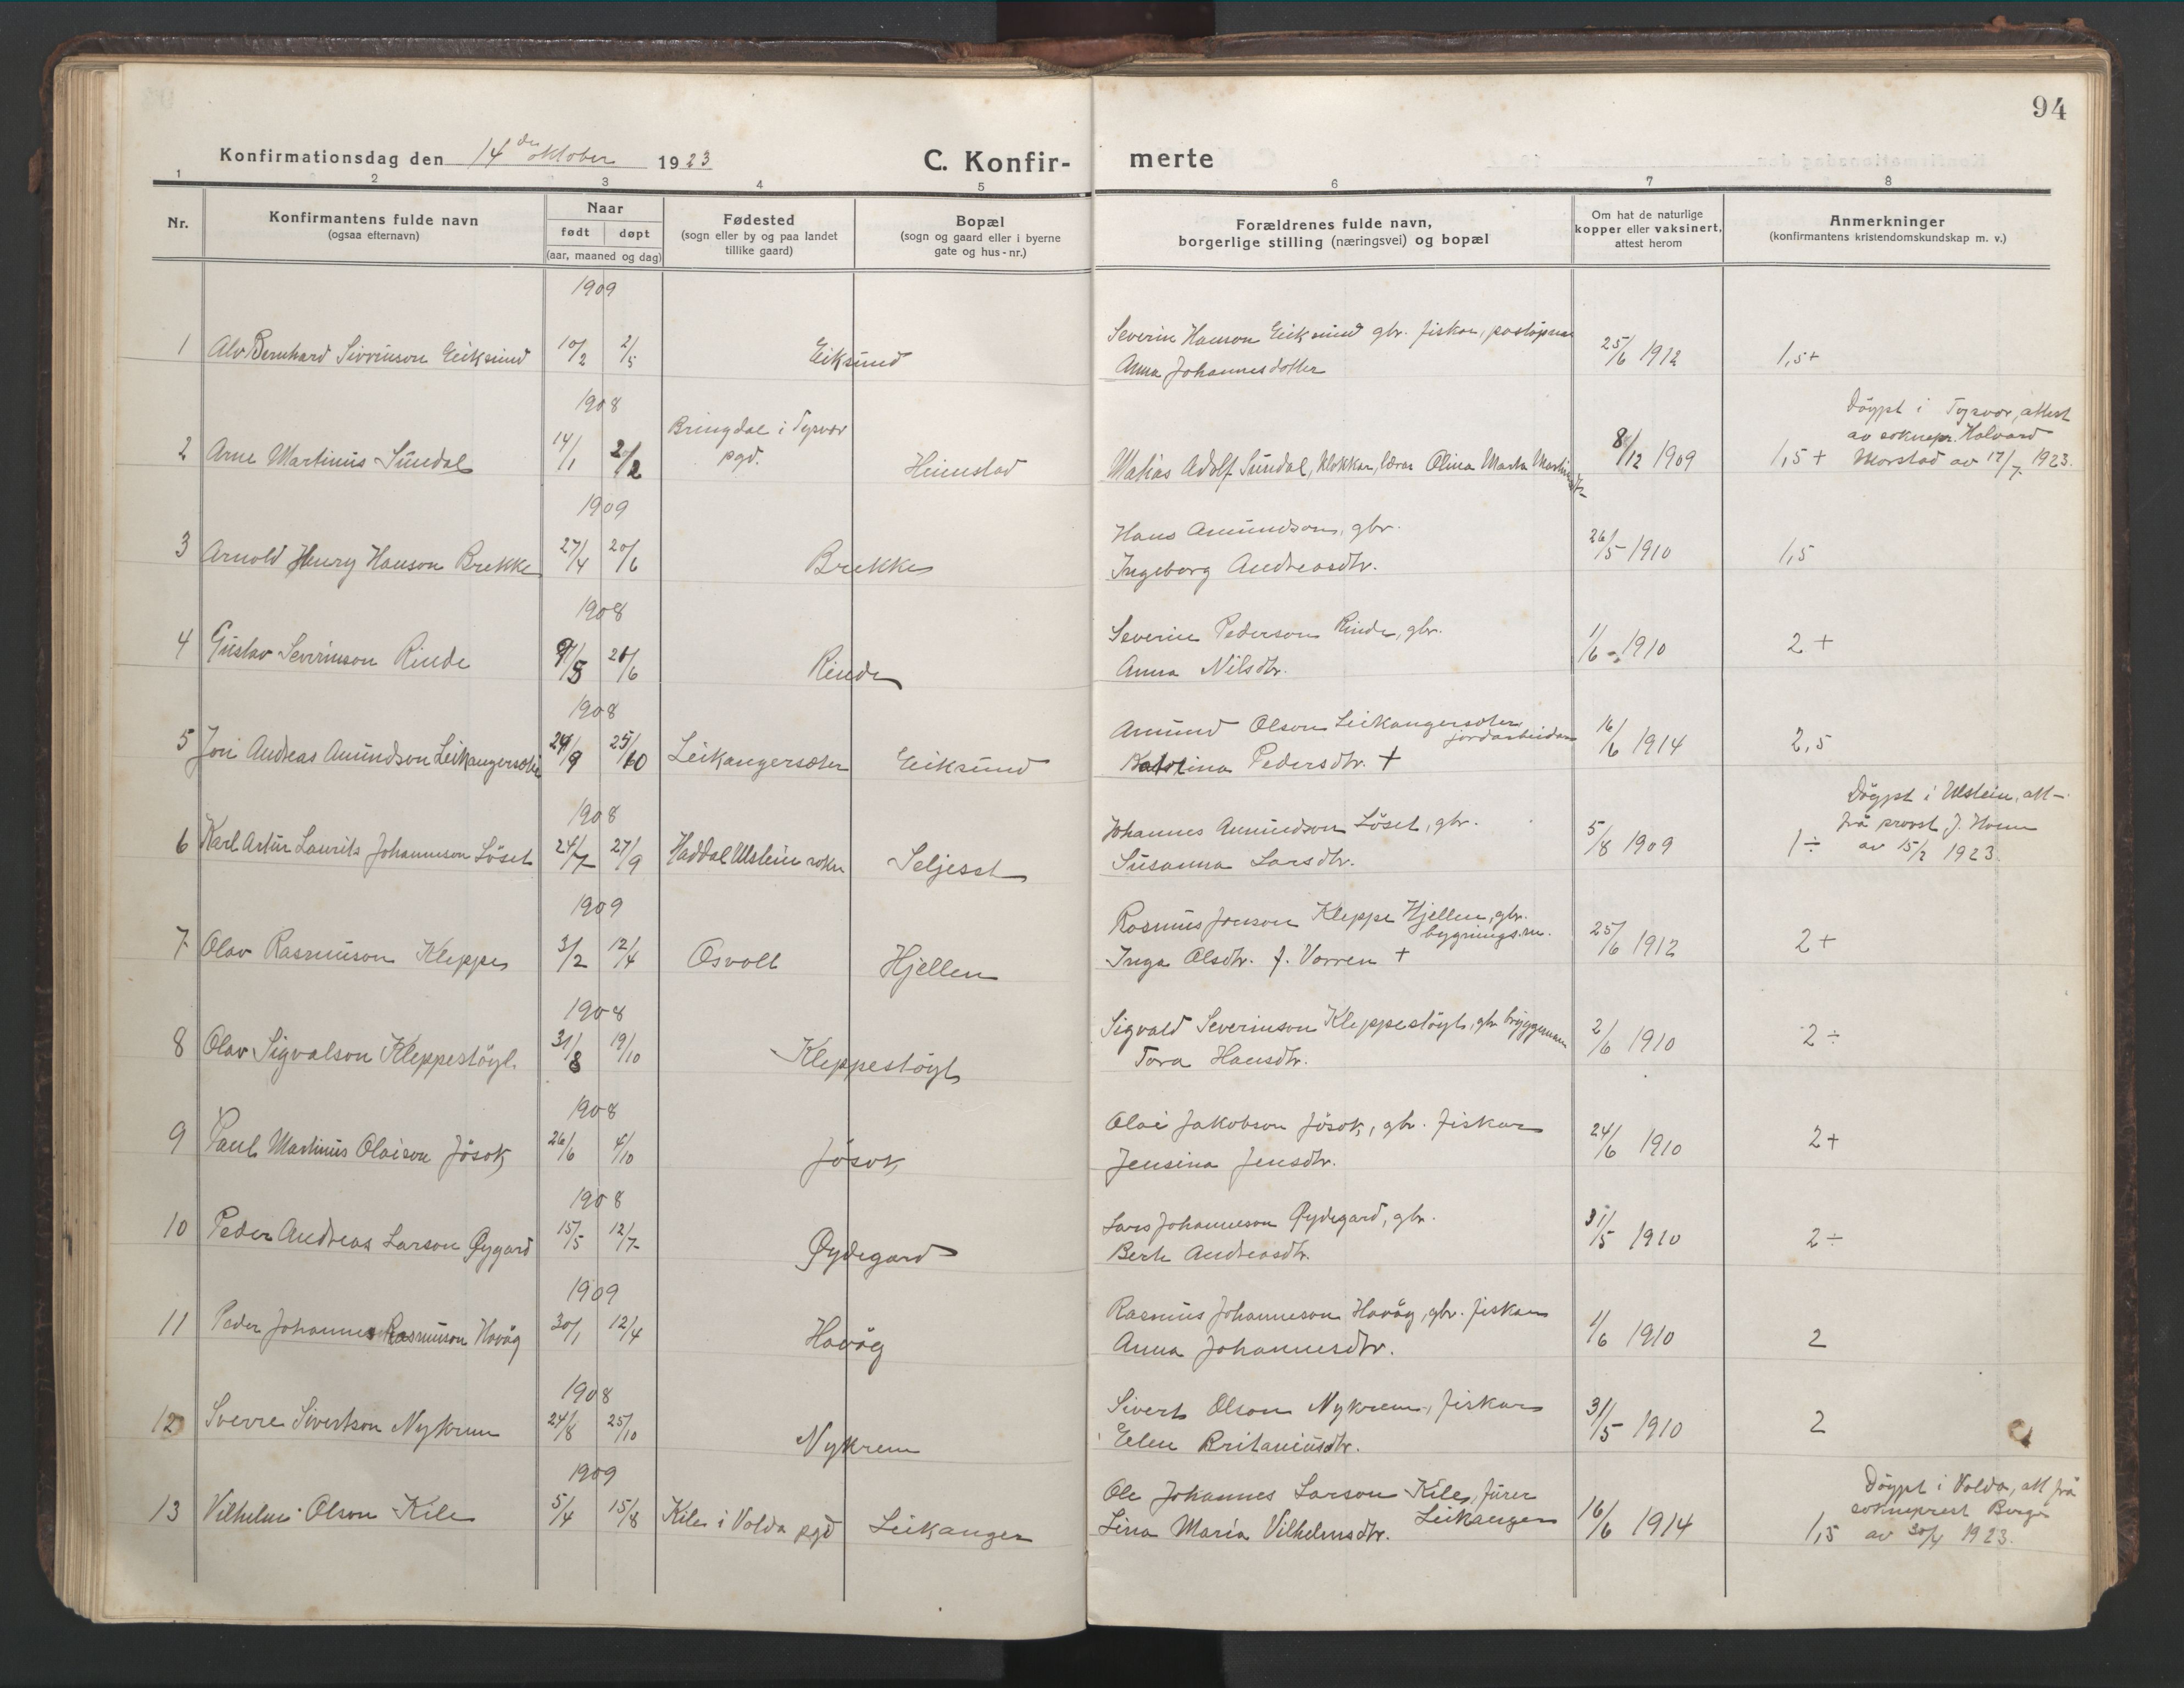 94
Konfirmationsdag den 14 de oktober 1923
C. Konfir-
merte
1 2 3 4 5 6 7 8
Nr.
Konfirmantens fulde navn
(ogsaa efternavn)
Naar
født døpt
(aar, maaned og dag)
Fødested
(sogn eller by og paa landet
tillike gaard)
Bopæl
(sogn og gaard eller i byerne
gate og hus-nr.)
Forældrenes fulde navn,
borgerlige stilling (næringsvei) og bopæl
Om hat de naturlige
kopper eller vaksinert,
attest herom
Anmerkninger
(konfirmantens kristendomskundskap m. v.)
1909
Severin Hanson Eiksund gbr. fiskar, postopnar
1 Alv Bernhard Sivrinson Eiksund 10/2 2/5 Eiksund 25/6 1912 1,5+
Anna Johannesdotter
1908
Bringdal i Tysvær
pgd.
Döypt i Tysvær, attest
av soknepr. Halvard
Morstad av 17/7 1923.
2 Arne Martinus Sundal 14/1 2/2 Heimstad Matias Adolf Sundal, klokkar, lærar Olina Marta Martinsdtr 8/12 1909 1,5+
1909
Hans Amundson, gbr.
3 Arnold Henry Hanson Brekke 27/4 20/6 Brekke 26/5 1910 1,5
Ingeborg Andreasdtr.
1908
Severin Pederson Rinde, gbr.
4 Gustav Severinson Rinde 9/5 21/6 Rinde 1/6 - 1910 2+
Anna Nilsdtr.
1908
Amund Olson Leikangersæter
jordarbeidar
5 Jon Andreas Amundson Leikangersæter 24/9 25/10 Leikangersæter Eiksund 16/6 1914 2,5
Katrina Pedersdtr. +
1908
Johannes Amundson Löset, gbr.
Döypt i Ulstein, att-
frå provst J. Hoem
av 15/2 1923.
6 Karl Artur Laurits Johanneson Löset 24/7 27/9 Haddal Ulstein sokn Seljeset 5/8 1909 1÷
Susanna Larsdtr.
1909
Rasmus Jonson Kleppe Hjellen, gbr.
bygnings.m.
7 Olav Rasmuson Kleppe 3/2 12/4 Osvoll Hjellen 25/6 1912 2+
Inga Olsdtr. f. Vorren +
1908
Sigvald Severinson Kleppestöyl, gbr. bryggemann
8 Olav Sigvalson Kleppestöyl. 31/8 19/10 Kleppestöyl 2/6 1910 2÷
Tora Hansdtr.
1908
Olai Jakobson Jösok, gbr. fiskar
9 Paul Martinus Olaison Jösok 26/6 4/10 Jösok 24/6 1910 2+
Jensina Jensdtr.
1908
Lars Johanneson Øydegard, gbr.
10 Peder Andreas Larson Øygard 15/5 12/7 Øydegard 31/5 1910 2÷
Berte Andreasdtr.
1909
Rasmus Johanneson Havåg, gbr. fiskar
11 Peder Johannes Rasmuson Havåg 30/1 12/4 Havåg 1/6 1910 2
Anna Johannesdtr.
1908
Sivert Olson Nykrem, fiskar
12 Sverre Sivertson Nykrem 24/8 25/10 Nykrem 31/5 1910 2
Elen Britaniusdtr.
1909
Ole Johannes Larson Kile, fürer
Leikanger
Döypt i Volda, att frå
sokneprest Berge
av 30/4 1923.
13 Vilhelm Olson Kile 5/4 15/8 Kile i Volda pgd Leikanger 16/6 1914 1,5
Lina Maria Vilhelmsdtr.